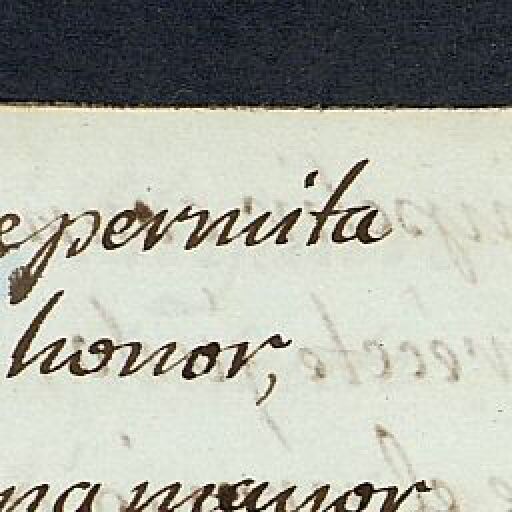 e permita
honor,
na mayor